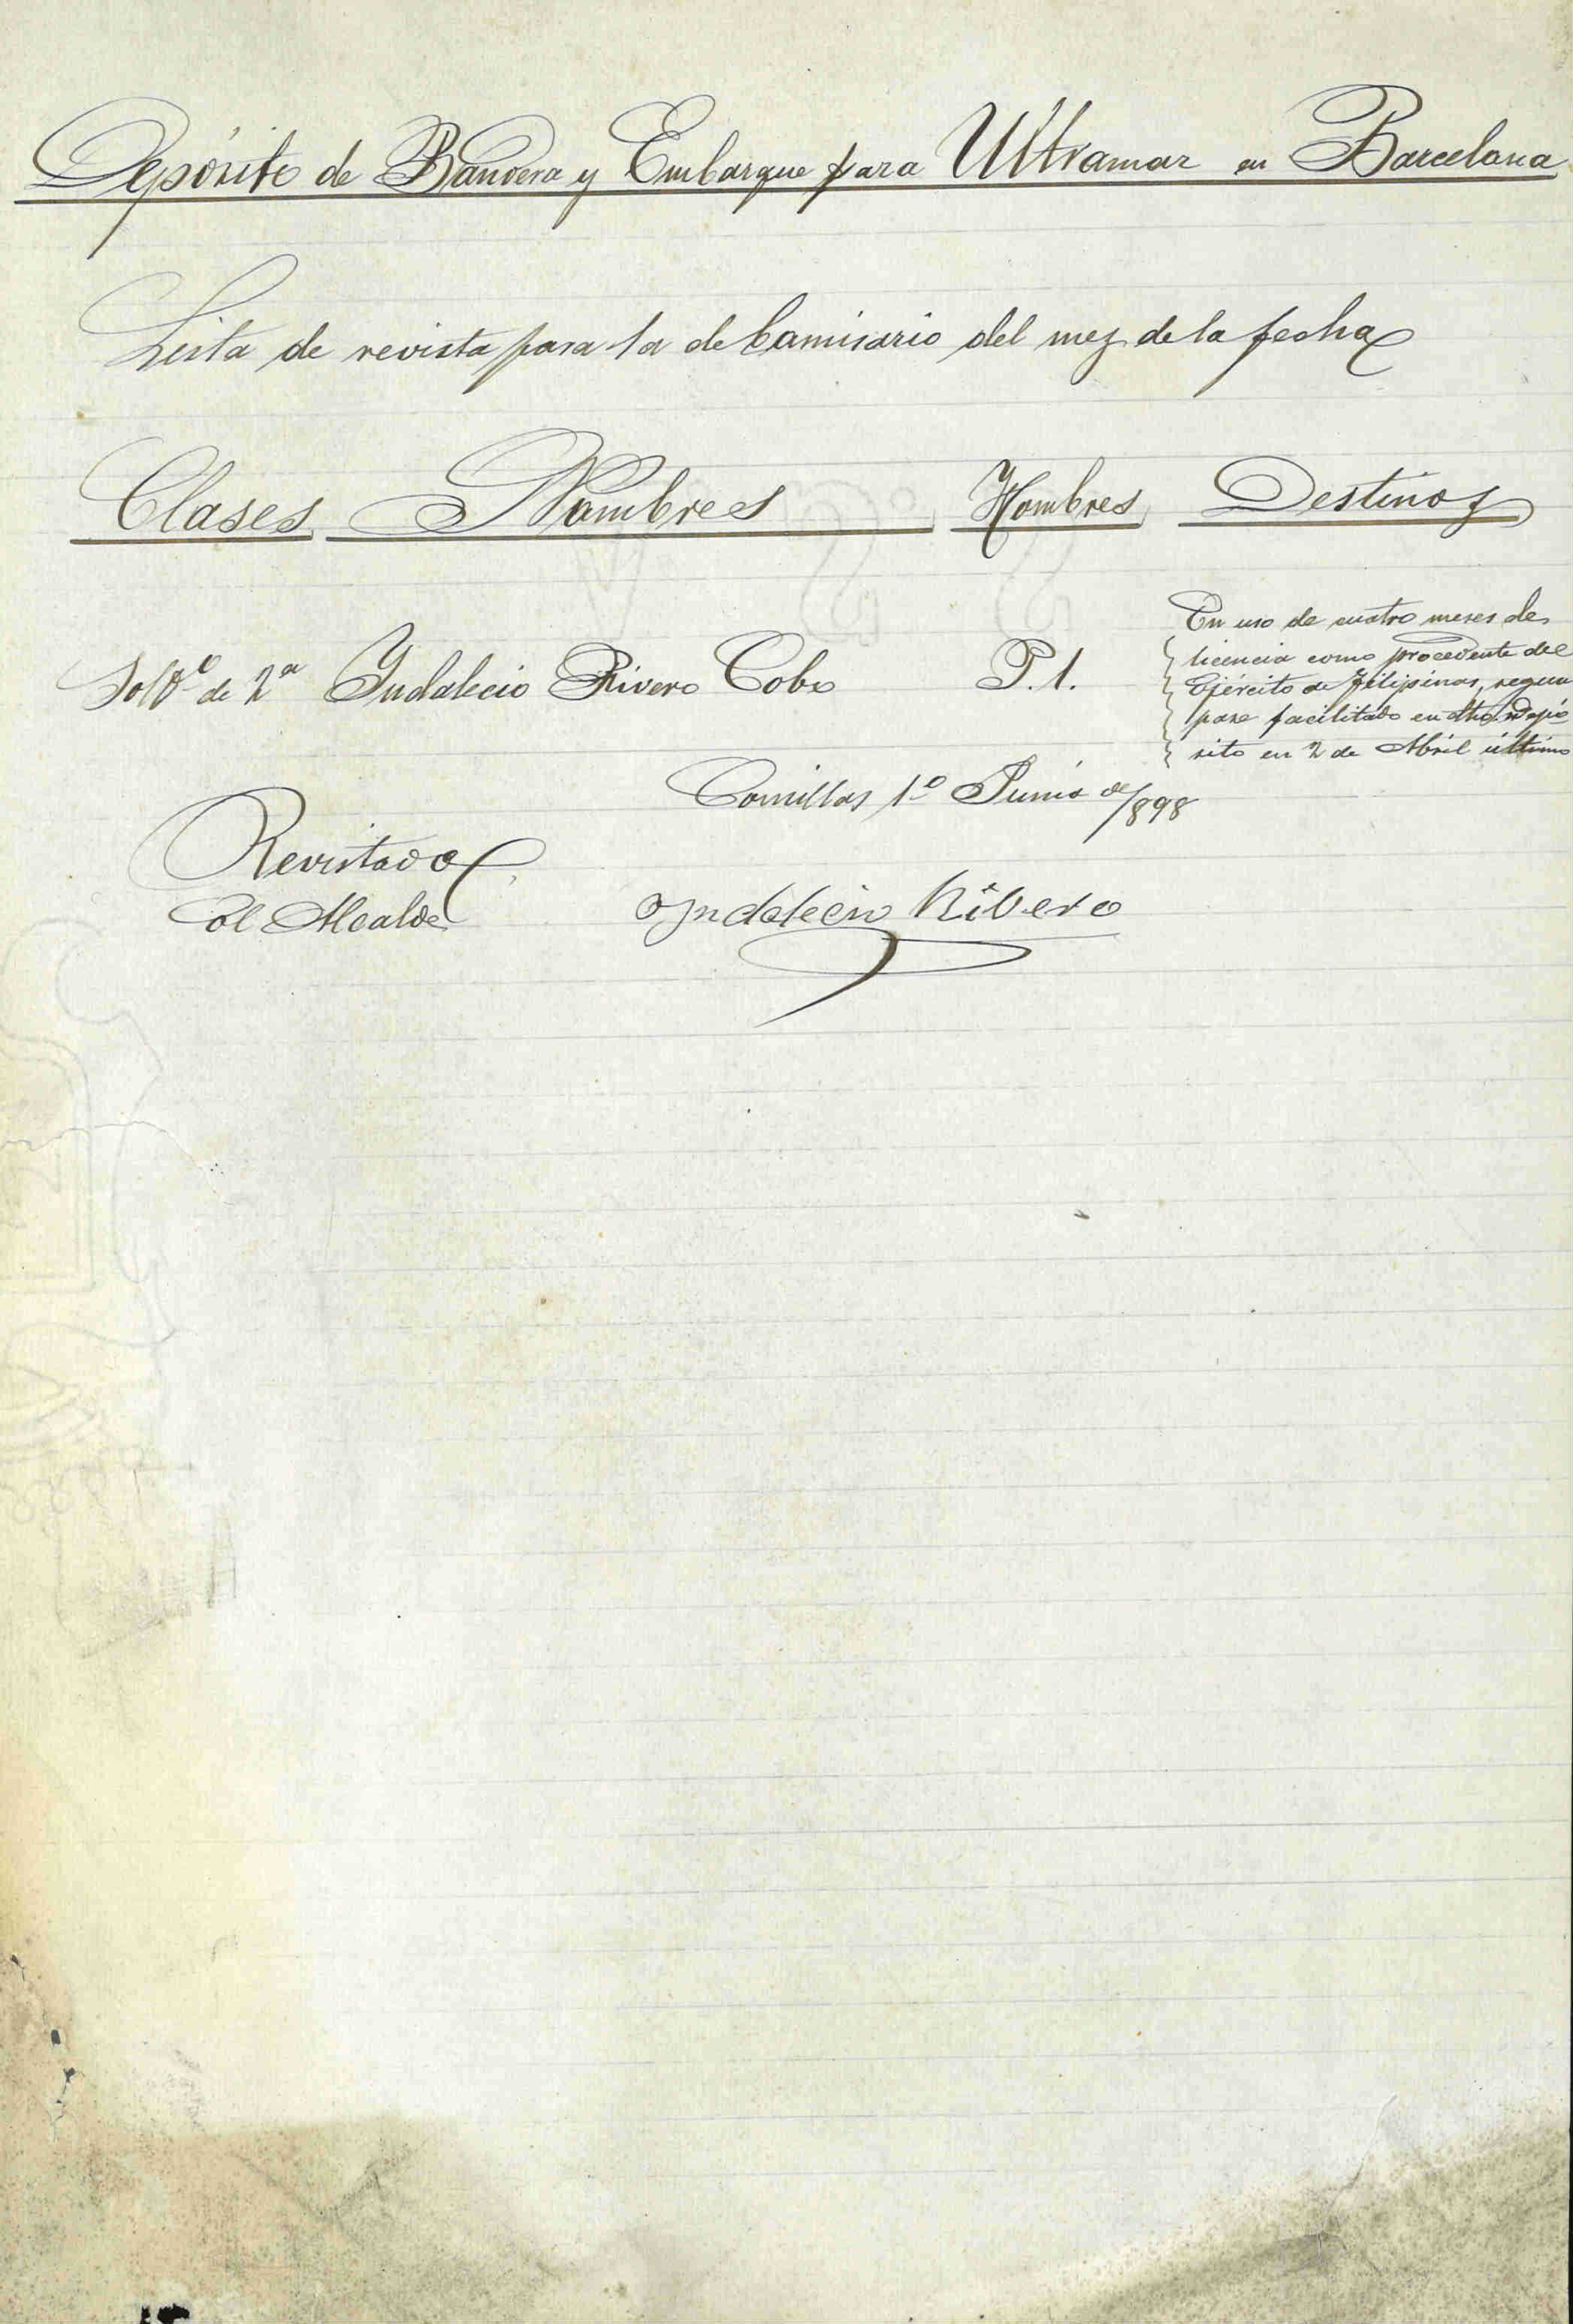 Depósito de Bandera y Embarque para Ultramar en Barcelona
Lista de revista para la de Comisario del mez de la fecha
Clases Nombres Hombres Destinos
Soldº de 2ª Indalecio Rivero Cobo P. 1.
En uso de cuatro meses de
licencia como procedente del
Ejército de Filipinas, segun
pase facilitado en dho. Depó
sito en 2 de Abril último
Comillas 1º Junio de 1898
Revistado
El Alcalde
Yndalecio Ribero